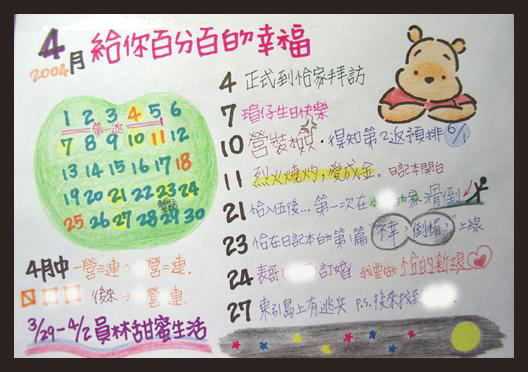 4月 給你百分百的幸福
2004
1 2 3 4 5 6
第一返
7 8 9 10 11 12
13 14 15 16 17 18
19 20 21 22 23 24
25 26 27 28 29 30
4月中 一營=連→ 營=連.
後來→ 營=連.
3/29-4/2 員林甜蜜生活
4 正式到恰家拜訪
7 瑄仔生日快樂
10 營裝檢. 得知第2返預排 6/1
11 烈火燒灼,愛成金. 日記本開始
21 恰入伍後...第一次在 家滑倒
23 恰在日記本的第1篇 "幸"倒楣" 上線
24 表哥 訂婚 我要做恰的新娘
27 東引島上有逃兵 P.S. 後來找到